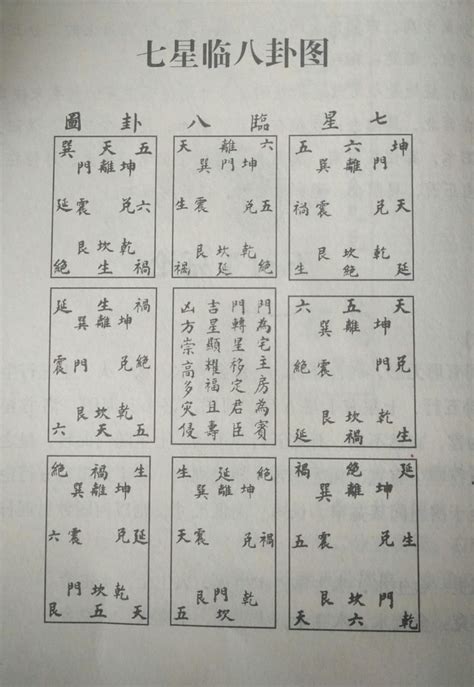 七星临八卦图
七星臨八卦圖
巽 天 五
門離坤
延震 兌六
艮坎乾
絕 生 禍
天 離 六
巽門坤
生震 兌五
艮坎乾
禍 延 絕
五 六 坤
巽離門
禍震 兌天
艮坎乾
生 絕 延
延 生 禍
巽離坤
震門 兌絕
艮坎乾
六 天 五
門為宅主房為賓
門轉星移定君臣
吉星顯耀福且專
凶方崇高多災侵
六 五 天
巽離坤
絕震 門兌
艮坎乾
延 禍 生
絕 禍 生
巽離坤
六震 兌延
門坎乾
艮 五 天
生 延 絕
巽離坤
天震 兌禍
艮門乾
五 坎
禍 絕 延
巽離坤
五震 兌生
艮坎門
天 六 乾